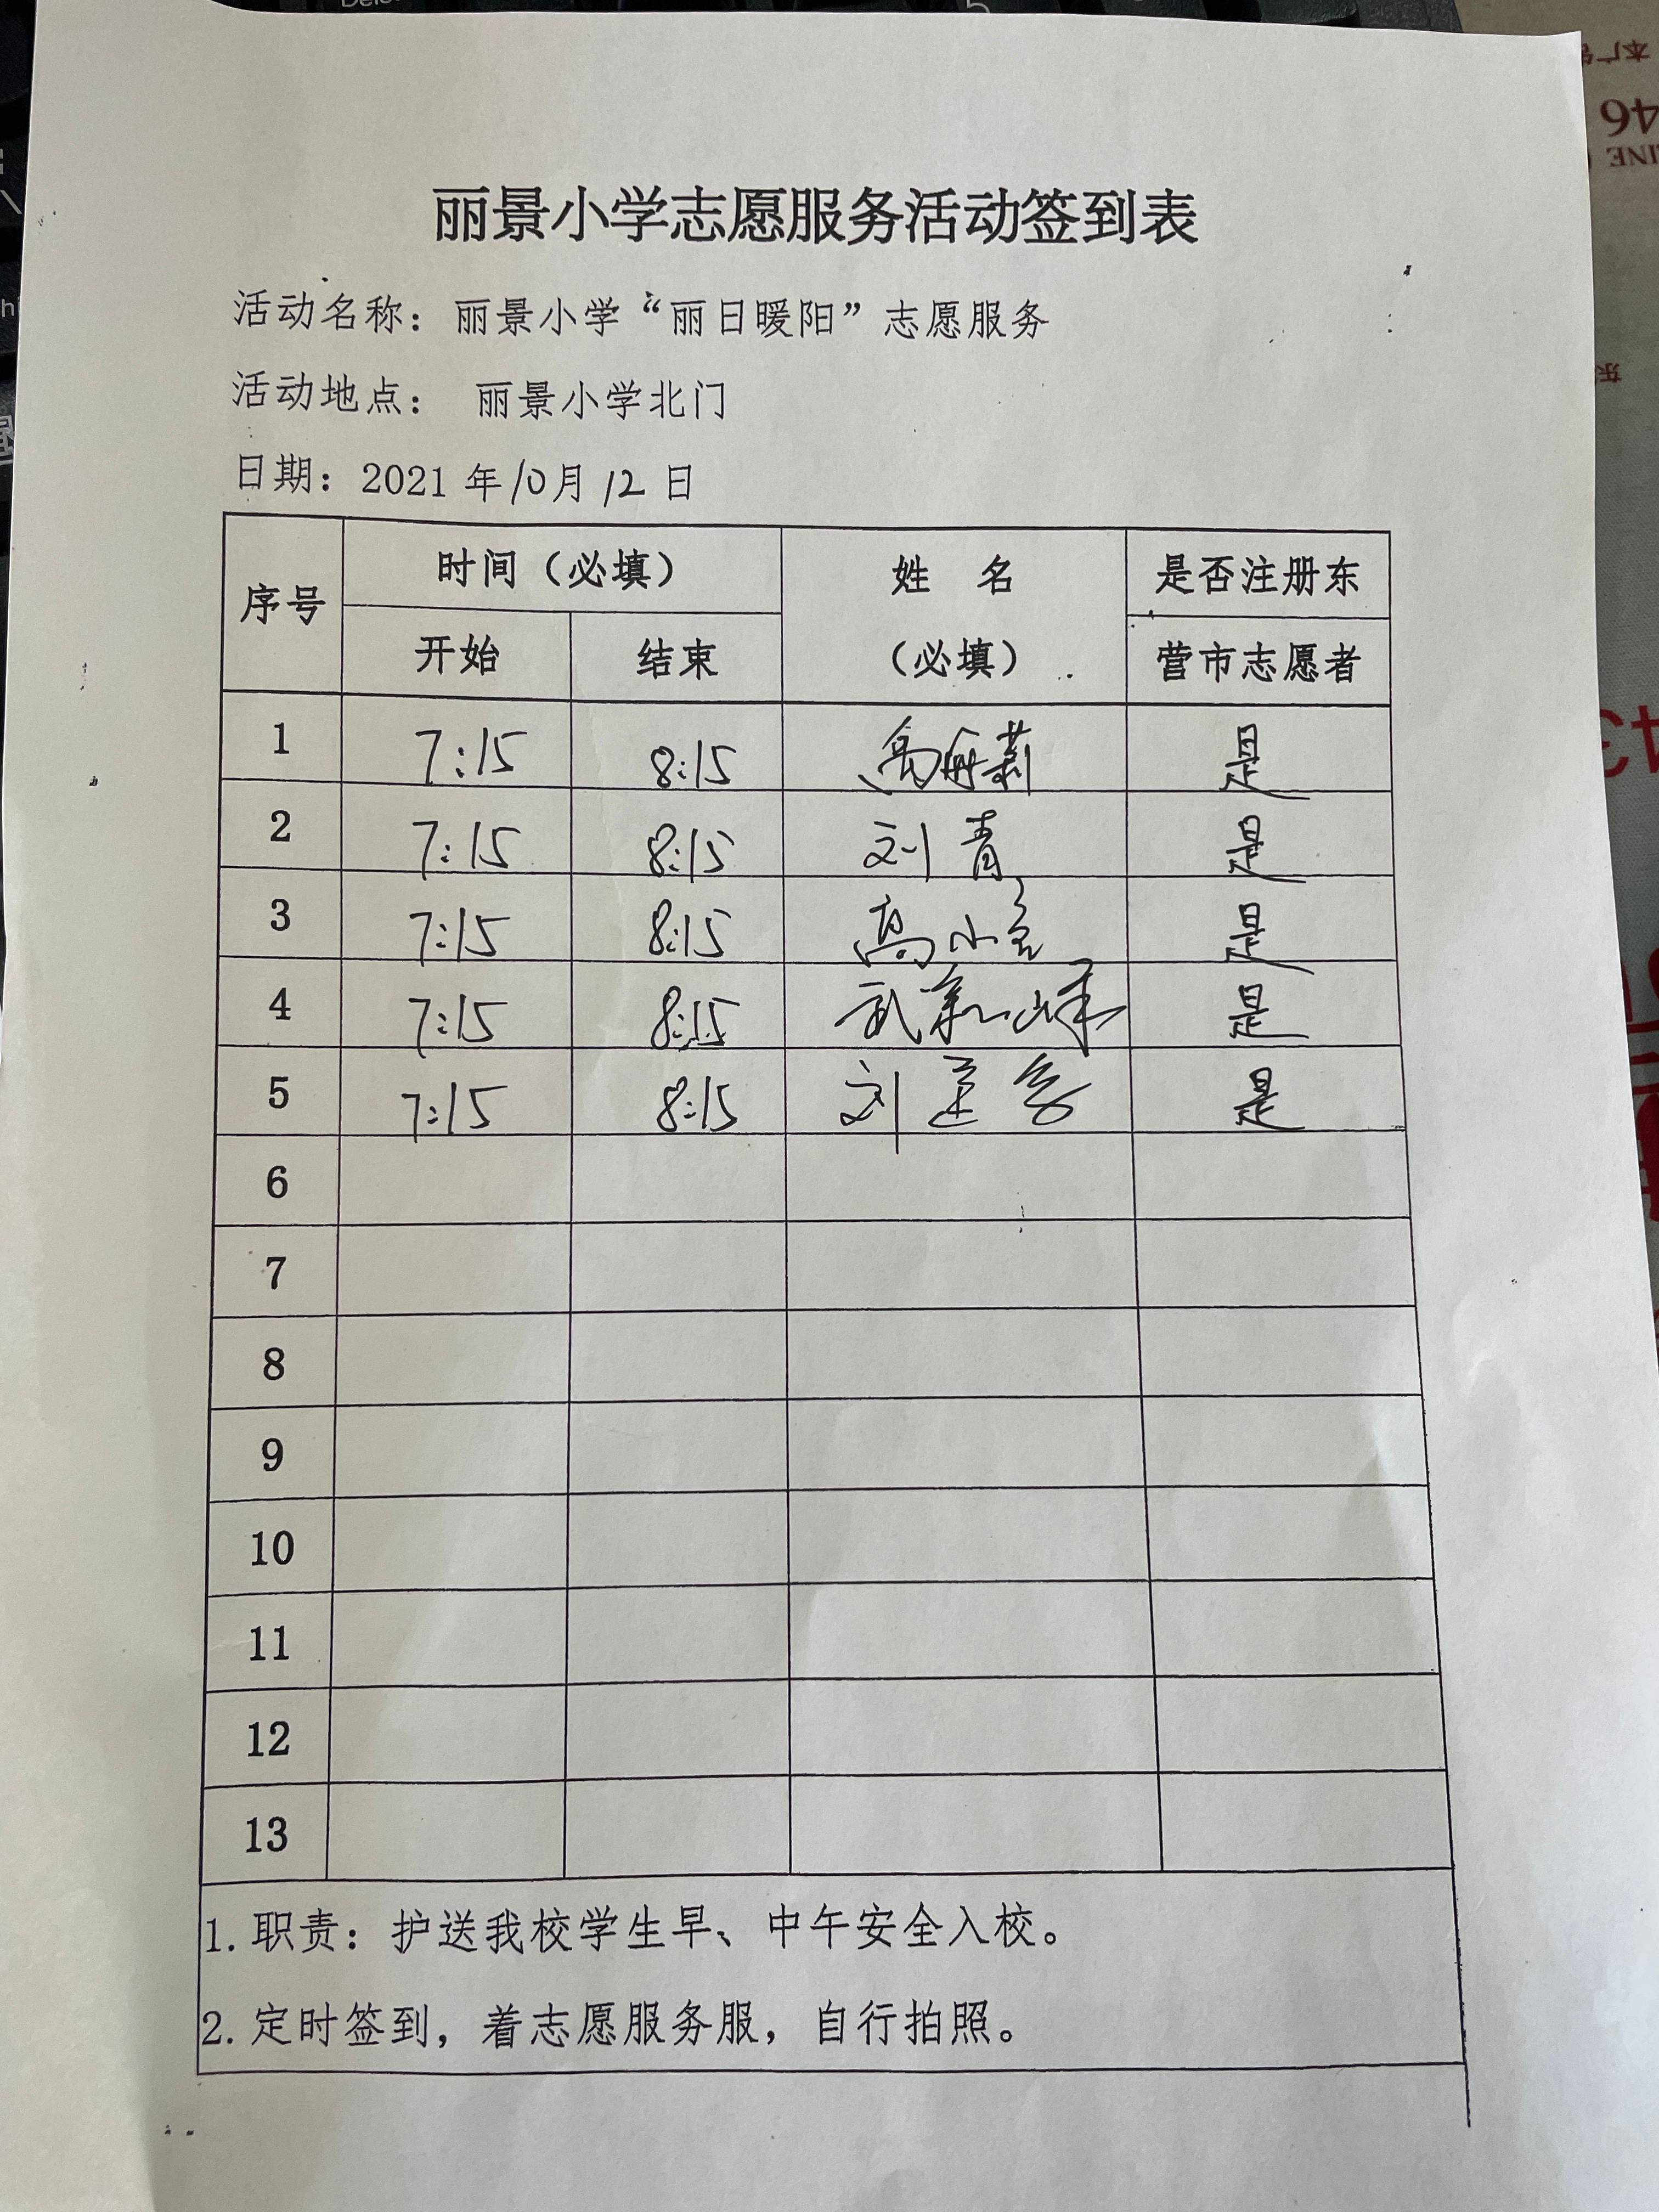 丽景小学志愿服务活动签到表
活动名称：丽景小学“丽日暖阳”志愿服务
活动地点： 丽景小学北门
日期：2021 年10月12日
序号 时间（必填） 姓 名 是否注册东
开始 结束 （必填） 营市志愿者
1 7:15 8:15 是
2 7:15 8:15 刘青 是
3 7:15 8:15 高小 是
4 7:15 8:15 武新峰 是
5 7:15 8:15 刘 是
6
7
8
9
10
11
12
13
1.职责：护送我校学生早、中午安全入校。
2.定时签到，着志愿服务服，自行拍照。
46